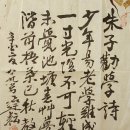 朱子勸學詩
少年易老學難成
一寸光陰不可輕
未覺池塘春草夢
階前梧葉已秋聲